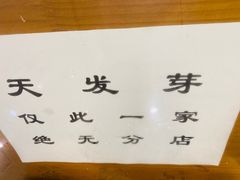 天发芽
仅此一家
绝无分店